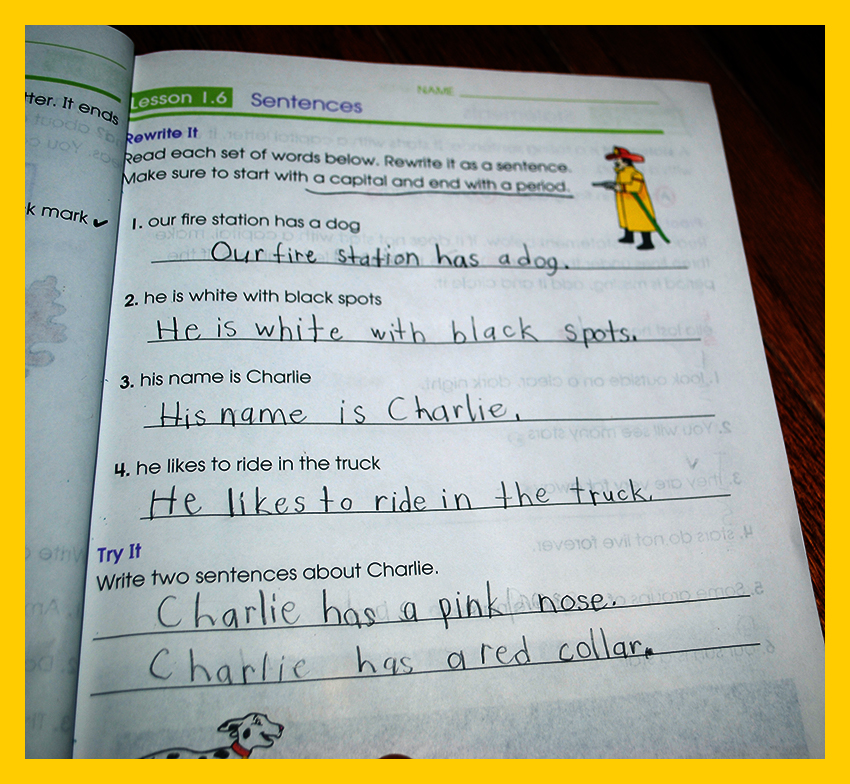 tter. It ends
k mark ✔
NAME
Lesson 1.6 Sentences
Rewrite It
Read each set of words below. Rewrite it as a sentence.
Make sure to start with a capital and end with a period.
1. our fire station has a dog
Our fire station has a dog.
2. he is white with black spots
He is white with black spots.
3. his name is Charlie
His name is Charlie.
4. he likes to ride in the truck
He likes to ride in the truck.
Try It
Write two sentences about Charlie.
Charlie has a pink nose.
Charlie has a red collar.